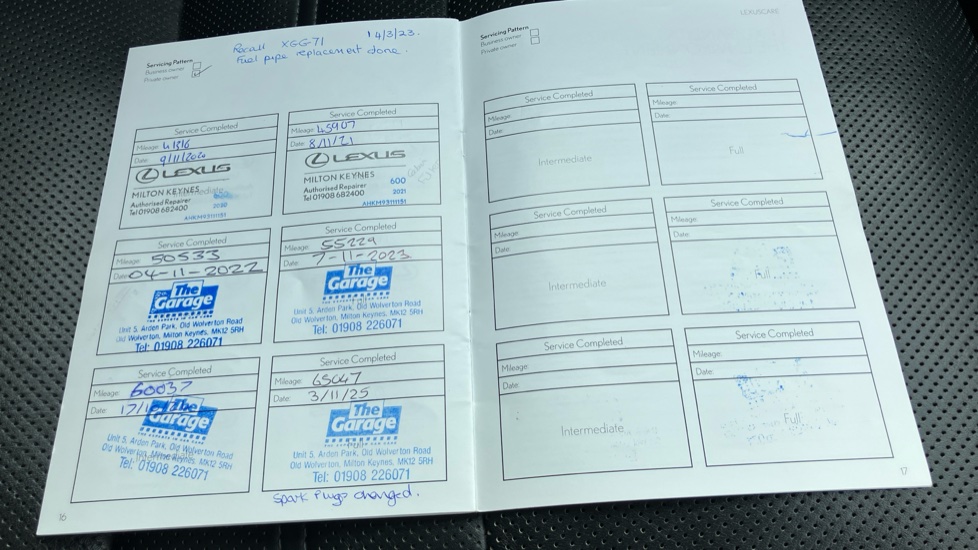 Recall XGG71 14/3/23.
Fuel pipe replacement done.
Servicing Pattern
Business owner
Private owner
Service Completed
Mileage:
Date: 9/11/2020
LEXUS
MILTON KEYNES
Authorised Repairer
Tel 01908 682400
2020
AHKM93111151
Service Completed
Mileage: 45907
Date: 8/11/21
LEXUS
MILTON KEYNES
Authorised Repairer
Tel 01908 682400
600
2021
AHKM93111151
Service Completed
Mileage: 50533
Date: 04-11-2022
The
Garage
Unit 5, Arden Park, Old Wolverton Road
Old Wolverton, Milton Keynes, MK12 5RH
Tel: 01908 226071
Service Completed
Mileage: 55229
Date: 7-11-2023
The
Garage
Unit 5, Arden Park, Old Wolverton Road
Old Wolverton, Milton Keynes, MK12 5RH
Tel: 01908 226071
Service Completed
Mileage: 60037
Date: 17/1
The
Garage
Unit 5, Arden Park, Old Wolverton Road
Old Wolverton, Milton Keynes, MK12 5RH
Tel: 01908 226071
Service Completed
Mileage: 65047
Date: 3/11/25
The
Garage
Unit 5, Arden Park, Old Wolverton Road
Old Wolverton, Milton Keynes, MK12 5RH
Tel: 01908 226071
Spark Plugs changed.
16
LEXUSCARE
Servicing Pattern
Business owner
Private owner
Service Completed
Mileage:
Date:
Intermediate
Service Completed
Mileage:
Date:
Full
Service Completed
Mileage:
Date:
Intermediate
Service Completed
Mileage:
Date:
Full
Service Completed
Mileage:
Date:
Intermediate
Service Completed
Mileage:
Date:
Full
17